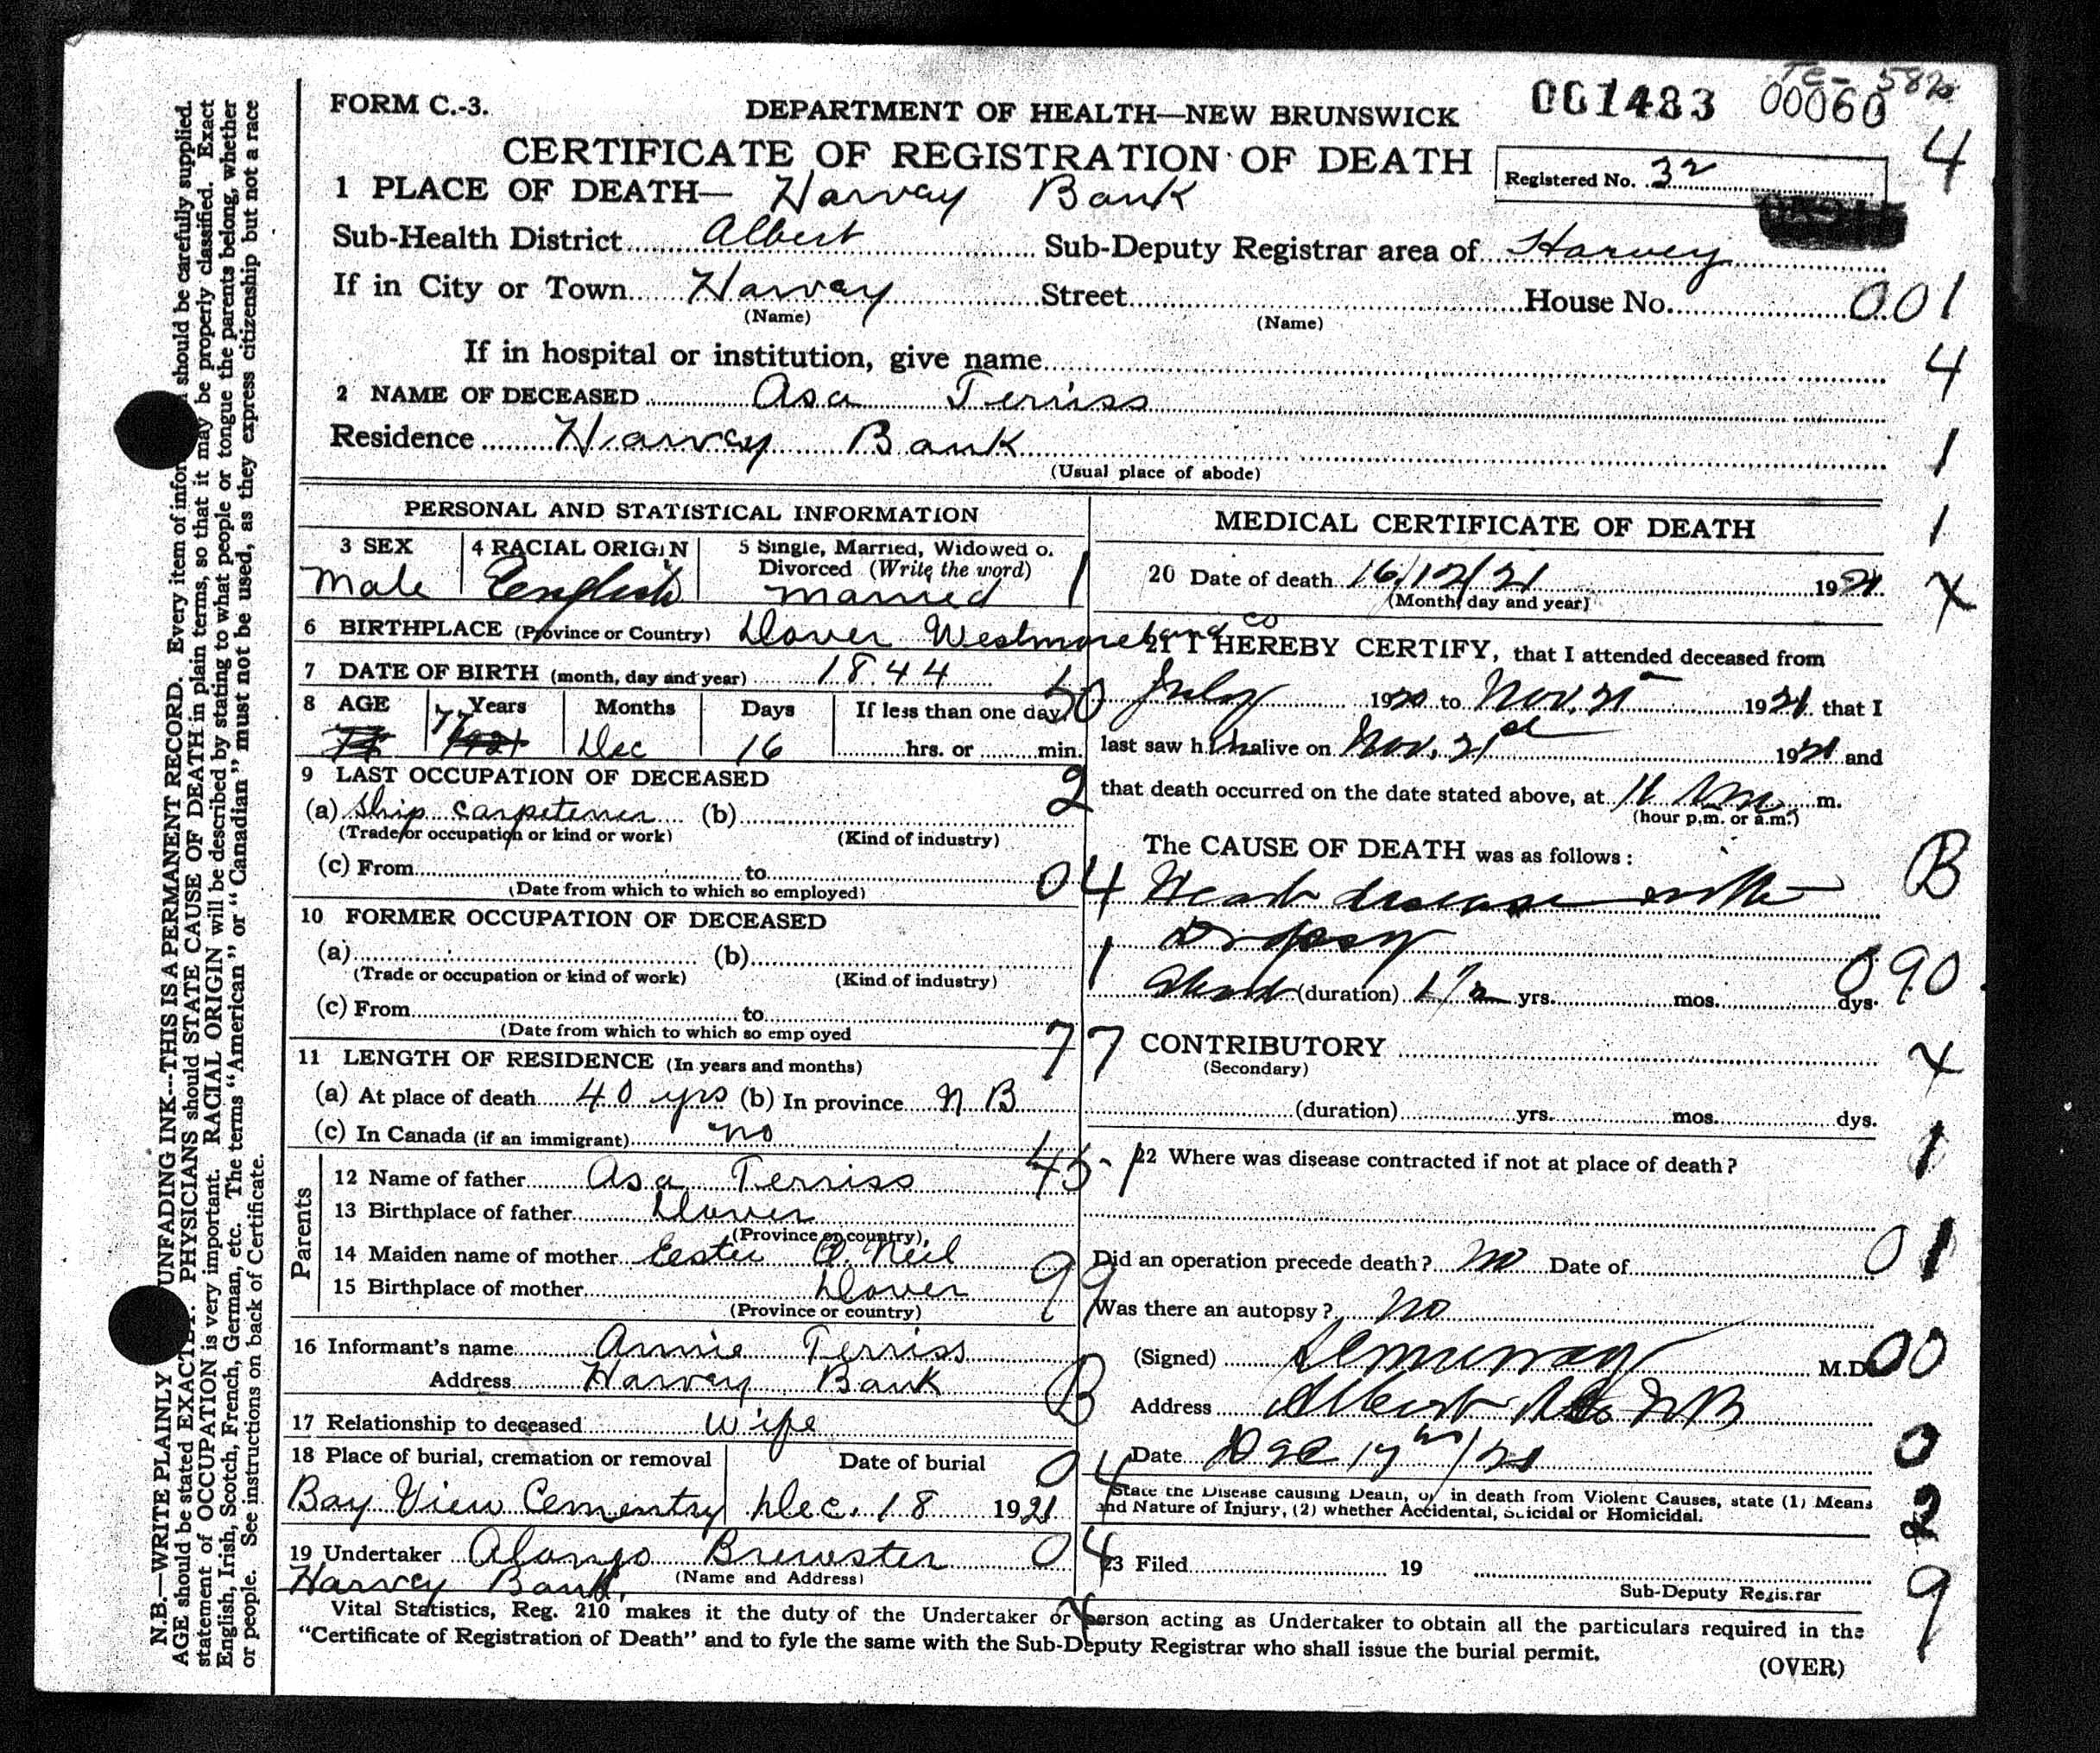 Te- 582
FORM C.-3. DEPARTMENT OF HEALTH—NEW BRUNSWICK 001483 00060
CERTIFICATE OF REGISTRATION OF DEATH 4
Registered No. 32
1 PLACE OF DEATH— Harvay Bank
Sub-Health District Albert Sub-Deputy Registrar area of Harvey
If in City or Town Harvay Street House No. 001
(Name) (Name)
If in hospital or institution, give name 4
2 NAME OF DECEASED Asa Terriss
Residence Harvay Bank 1
(Usual place of abode)
PERSONAL AND STATISTICAL INFORMATION
3 SEX 4 RACIAL ORIGIN 5 Single, Married, Widowed o.
Divorced (Write the word)
Male English married 1
6 BIRTHPLACE (Province or Country) Dover Westmoreland Co
7 DATE OF BIRTH (month, day and year) 1844
8 AGE Years Months Days If less than one day
77 Dec 16 hrs. or min.
9 LAST OCCUPATION OF DECEASED 2
(a) Ship carpetener (b)
(Trade or occupation or kind or work) (Kind of industry)
(c) From to 04
(Date from which to which so employed)
10 FORMER OCCUPATION OF DECEASED
(a) (b)
(Trade or occupation or kind of work) (Kind of industry)
(c) From to
(Date from which to which so emp oyed
11 LENGTH OF RESIDENCE (In years and months) 77
(a) At place of death 40 yrs (b) In province N B
(c) In Canada (if an immigrant) no
Parents
12 Name of father Asa Terriss 45-1
13 Birthplace of father Dover
(Province or country)
14 Maiden name of mother Eester O. Neil
15 Birthplace of mother Dover 99
(Province or country)
16 Informant's name Annie Terriss
Address Harvey Bank B
17 Relationship to deceased wife
18 Place of burial, cremation or removal Date of burial 04
Bay View Cementry Dec. 18 1921
19 Undertaker Alonzo Brewster 04
Harvey Bank, (Name and Address)
MEDICAL CERTIFICATE OF DEATH 1
20 Date of death 16/12/21 1921 X
(Month, day and year)
21 I HEREBY CERTIFY, that I attended deceased from
July 1920 to Nov. 21 1921 that I
last saw him alive on Nov. 21st 1921 and
that death occurred on the date stated above, at 11 m.
(hour p.m. or a.m.)
The CAUSE OF DEATH was as follows: B
Heart disease with
Dropsy
1 About (duration) 1 1/2 yrs. mos. dys. 090
CONTRIBUTORY X
(Secondary)
(duration) yrs. mos. dys.
22 Where was disease contracted if not at place of death? 1
Did an operation precede death? no Date of 01
Was there an autopsy? no
(Signed) M.D. 00
Address Albert NB
Date Dec 17th/21 0
State the Disease causing Death, or in death from Violent Causes, state (1) Means
and Nature of Injury, (2) whether Accidental, Suicidal or Homicidal. 2
23 Filed 19
Sub-Deputy Registrar 9
Vital Statistics, Reg. 210 makes it the duty of the Undertaker or person acting as Undertaker to obtain all the particulars required in the
“Certificate of Registration of Death” and to fyle the same with the Sub-Deputy Registrar who shall issue the burial permit.
(OVER)
N.B.—WRITE PLAINLY UNFADING INK---THIS IS A PERMANENT RECORD. Every item of infor should be carefully supplied.
AGE should be stated EXACTLY. PHYSICIANS should STATE CAUSE OF DEATH in plain terms, so that it may be properly classified. Exact
statement of OCCUPATION is very important. RACIAL ORIGIN will be described by stating to what people or tongue the parents belong, whether
English, Irish, Scotch, French, German, etc. The terms “American” or “Canadian” must not be used, as they express citizenship but not a race
or people. See instructions on back of Certificate.